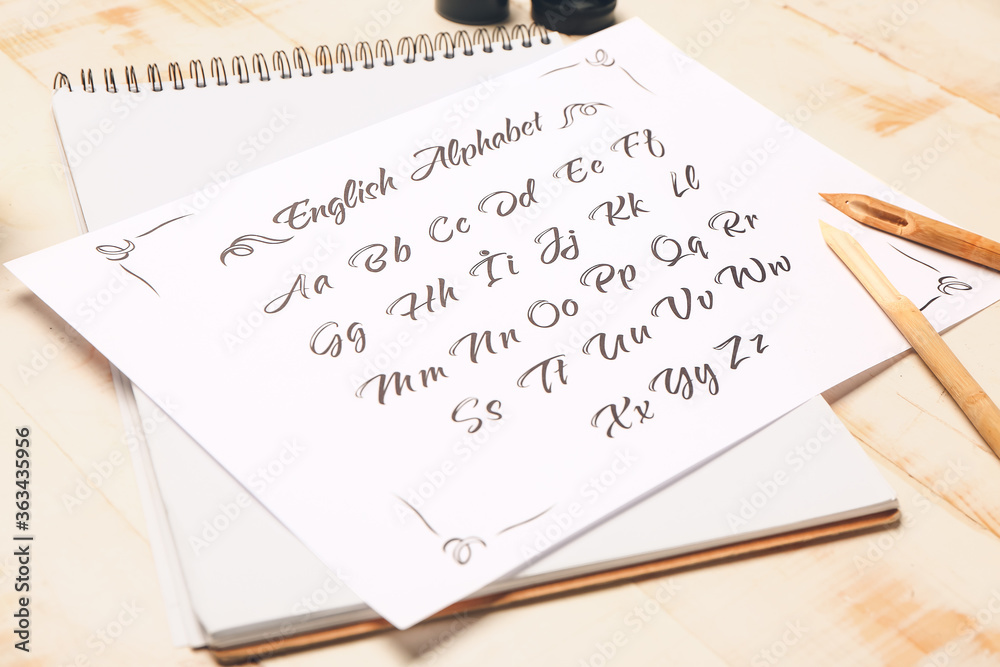 English Alphabet
Aa Bb Cc Dd Ee Ff
Gg Hh Ii Jj Kk Ll
Mm Nn Oo Pp Qq Rr
Ss Tt Uu Vv Ww
Xx Yy Zz
Adobe Stock | #363435956